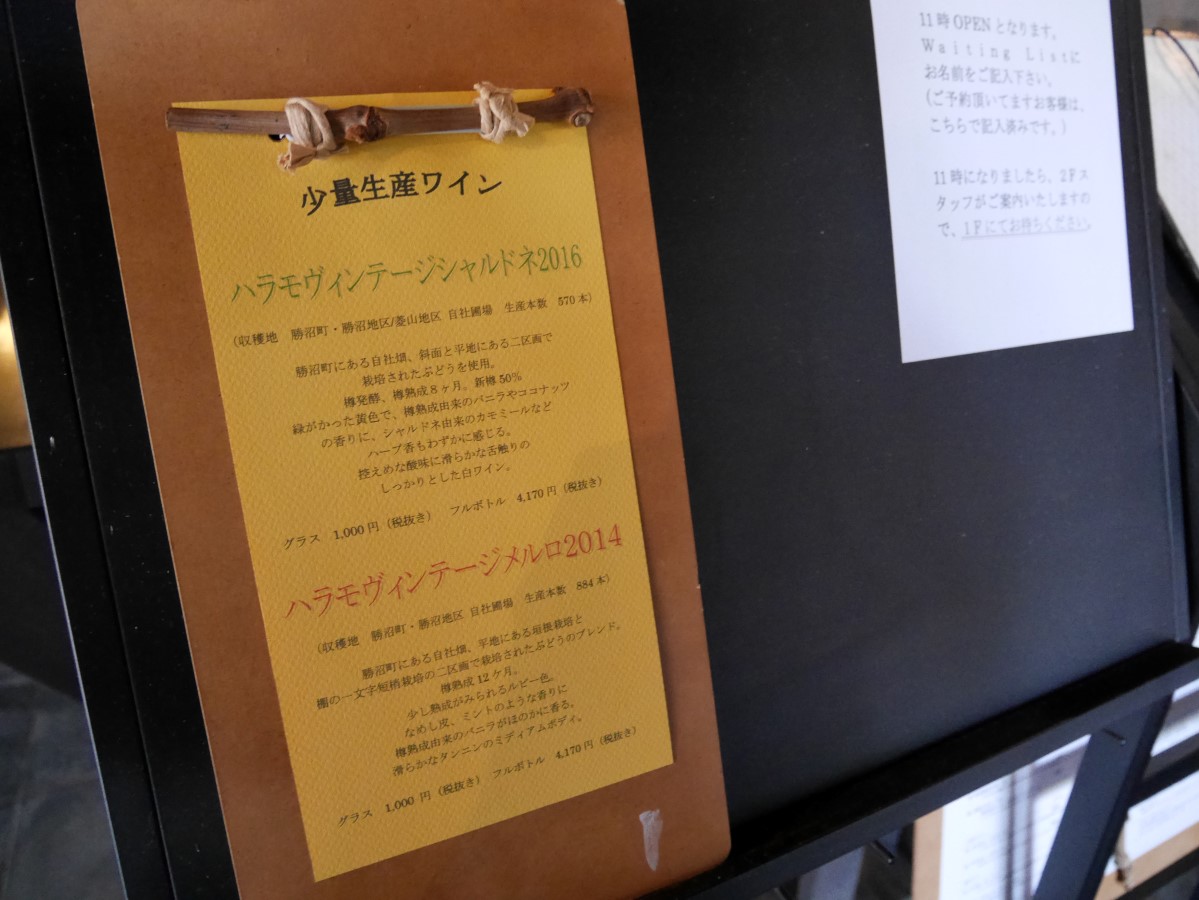 少量生産ワイン
ハラモヴィンテージシャルドネ2016
(収穫地　勝沼町・勝沼地区/菱山地区 自社圃場　生産本数　570本)
勝沼町にある自社畑、斜面と平地にある二区画で
栽培されたぶどうを使用。
樽発酵、樽熟成8ヶ月。新樽50%
緑がかった黄色で、樽熟成由来のバニラやココナッツ
の香りに、シャルドネ由来のカモミールなど
ハーブ香もわずかに感じる。
控えめな酸味に滑らかな舌触りの
しっかりとした白ワイン。
グラス　1,000円（税抜き）　フルボトル　4,170円（税抜き）
ハラモヴィンテージメルロ2014
(収穫地　勝沼町・勝沼地区 自社圃場　生産本数　884本)
勝沼町にある自社畑、平地にある垣根栽培と
棚の一文字短梢栽培の二区画で栽培されたぶどうのブレンド。
樽熟成12ケ月。
少し熟成がみられるルビー色。
なめし皮、ミントのような香りに
樽熟成由来のバニラがほのかに香る。
滑らかなタンニンのミディアムボディ。
グラス　1,000 円（税抜き）　フルボトル　4,170円（税抜き）
11時OPENとなります。
Waiting Listに
お名前をご記入下さい。
(ご予約頂いてますお客様は、
こちらで記入済みです。)
11時になりましたら、2Fス
タッフがご案内いたしますの
で、1Fにてお待ちください。